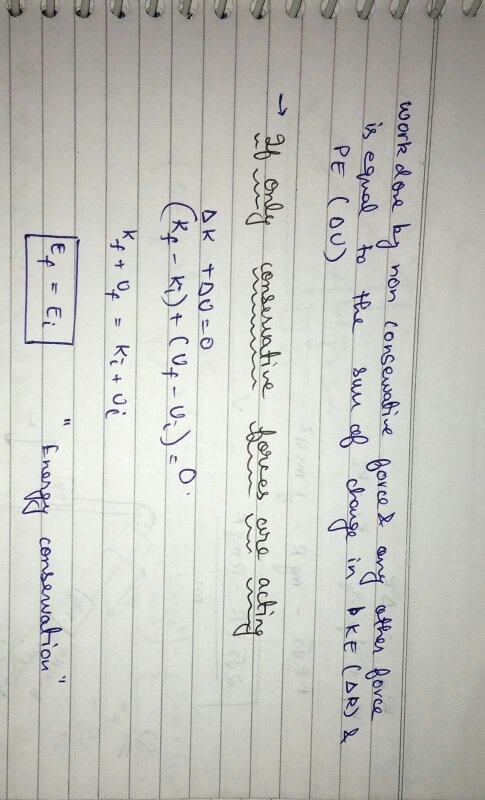 work done by non conservative force & any other force
is equal to the sum of change in KE (ΔK) &
PE (ΔU)
→ If only conservative forces are acting
ΔK + ΔU = 0
(Kf - Ki) + (Uf - Ui) = 0
Kf + Uf = Ki + Ui
Ef = Ei "Energy conservation"